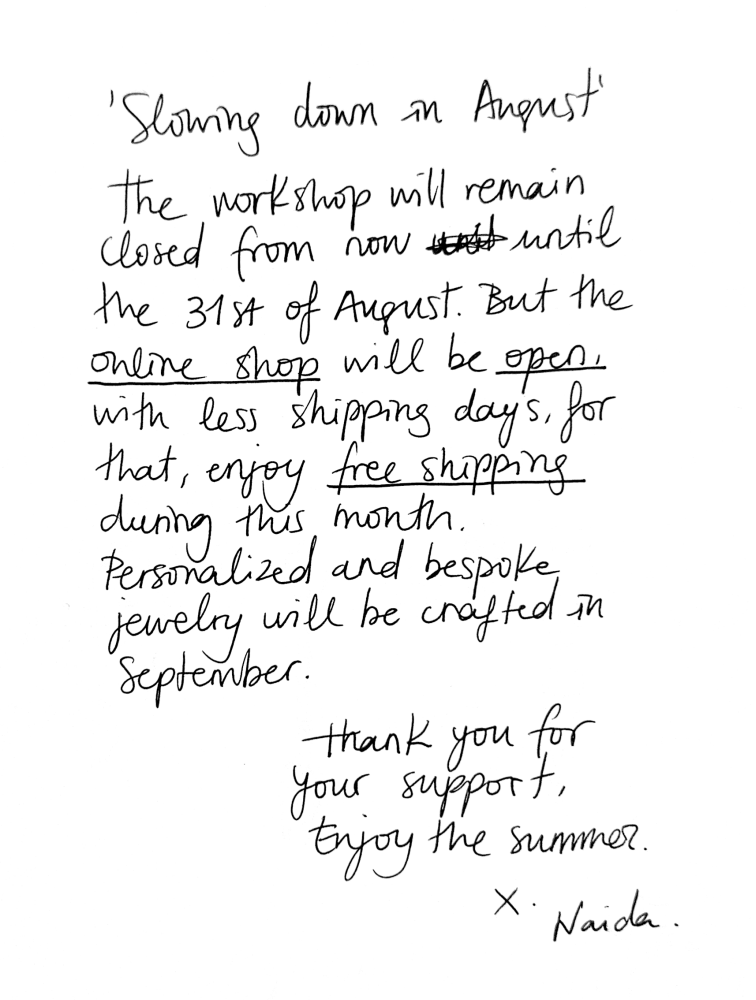 'Slowing down in August'
The workshop will remain
closed from now until
the 31st of August. But the
online shop will be open,
with less shipping days, for
that, enjoy free shipping
during this month.
Personalized and bespoke
jewelry will be crafted in
September.
Thank you for
your support,
Enjoy the summer.
X.
Naida.